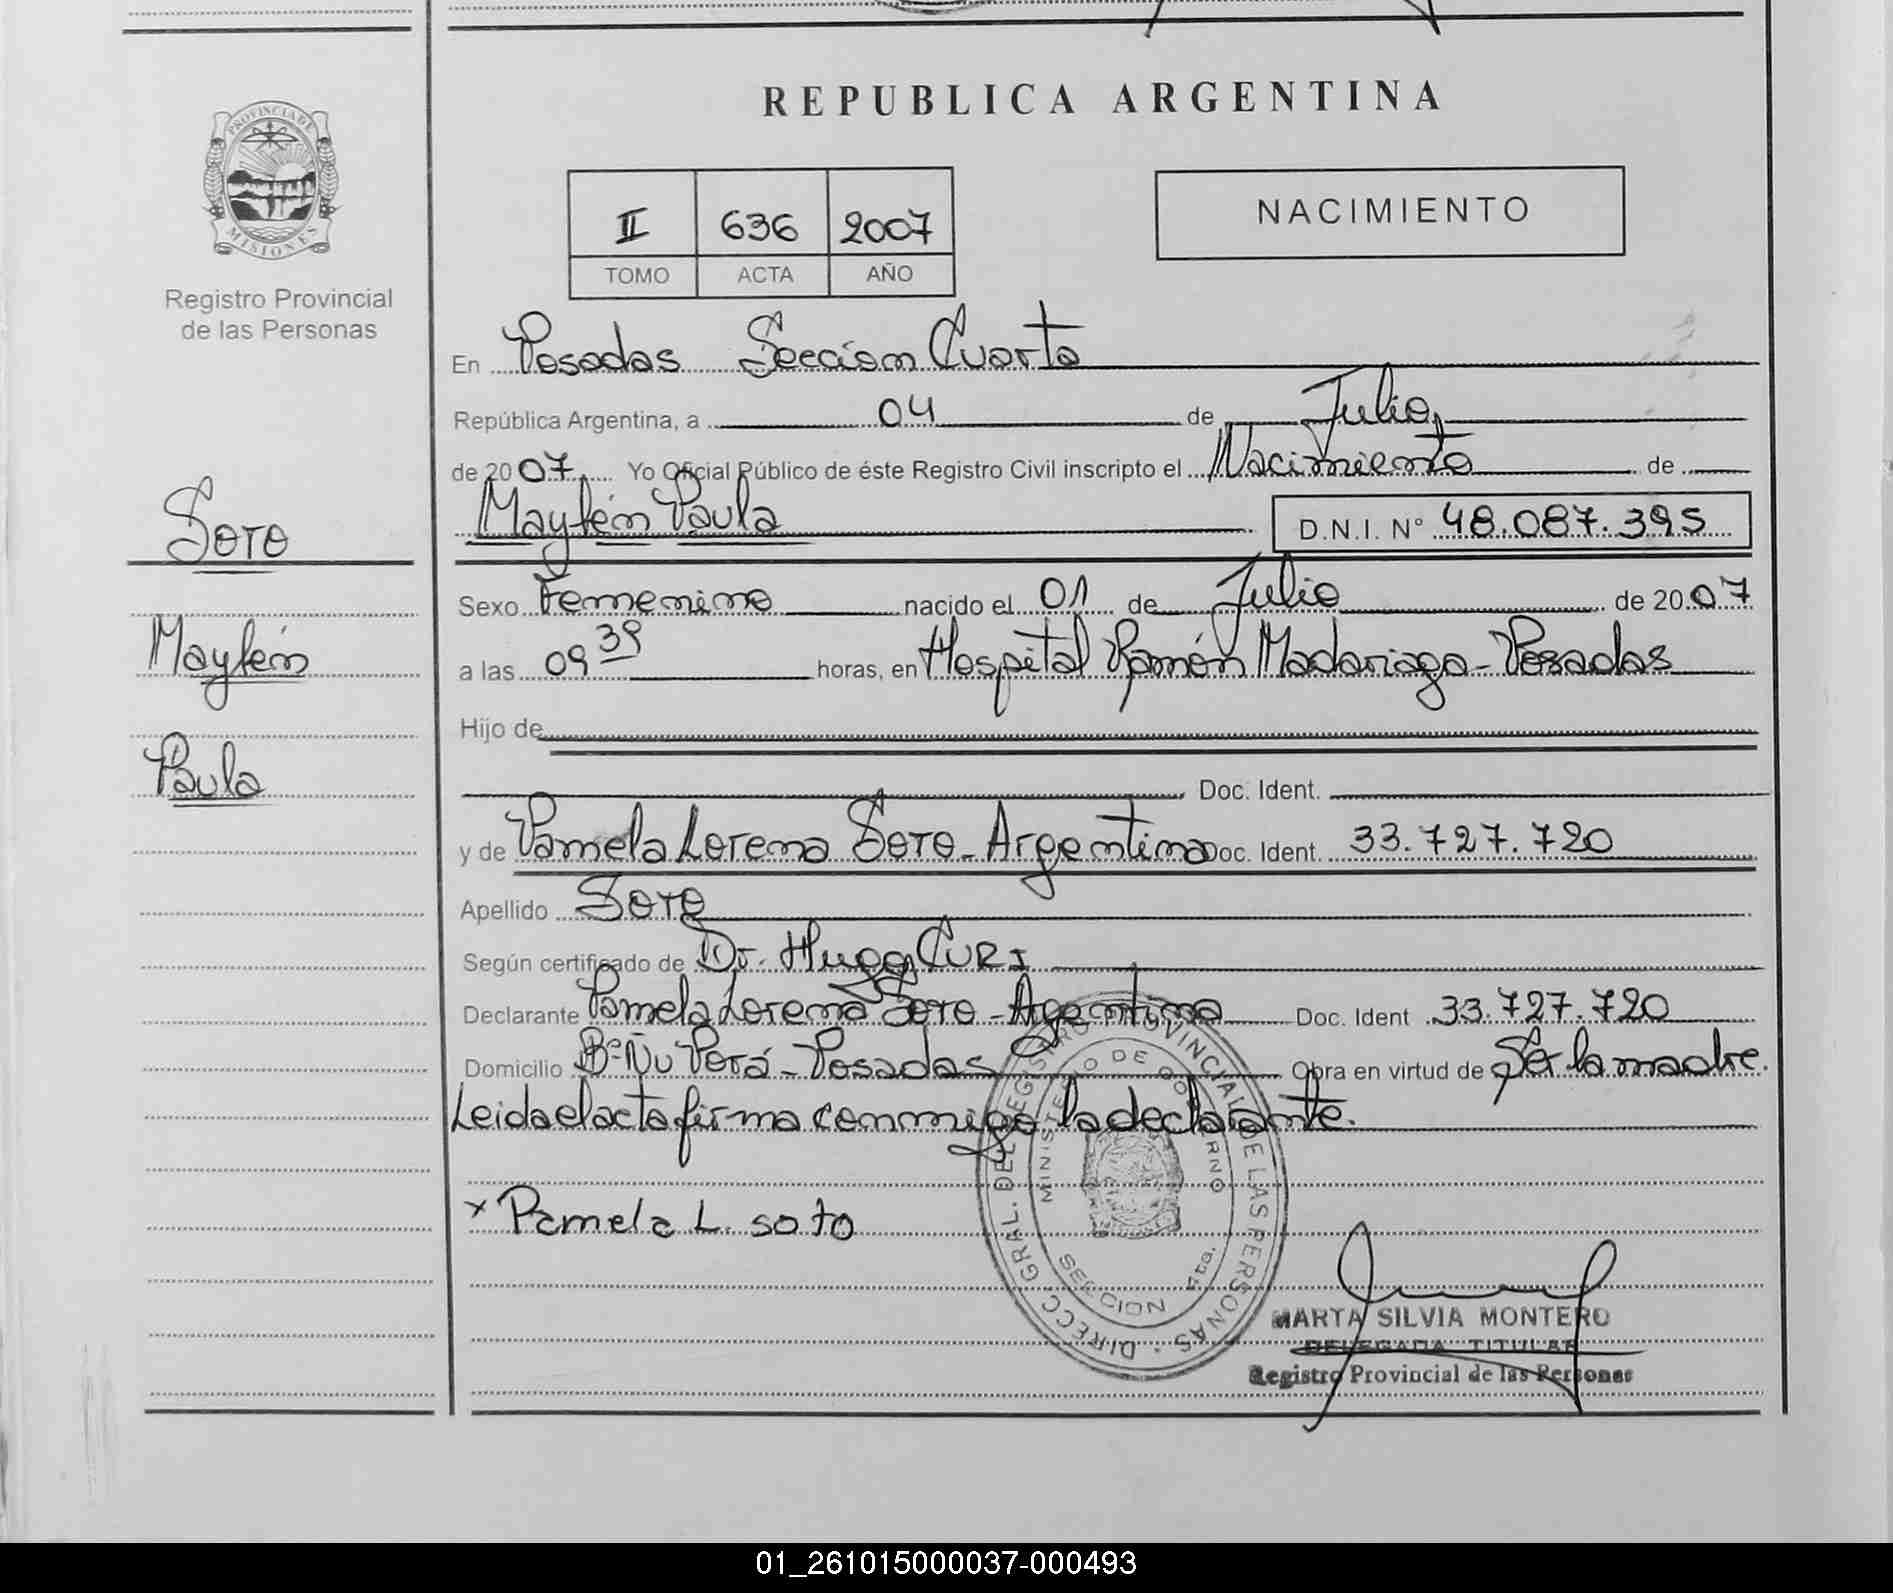 REPUBLICA ARGENTINA
PROVINCIA DE MISIONES
Registro Provincial
de las Personas
II 636 2007
TOMO ACTA AÑO
NACIMIENTO
En Posadas Sección Cuarta
República Argentina, a 04 de Julio,
de 2007, Yo Oficial Público de éste Registro Civil inscripto el Nacimiento de
Maylén Paula D.N.I. Nº 48.087.395
Soto
Maylén
Paula
Sexo Femenino nacido el 01 de Julio de 2007
a las 09 39 horas, en Hospital Ramón Madariaga - Posadas
Hijo de
Doc. Ident.
y de Pamela Lorena Soto - Argentina Doc. Ident. 33.727.720
Apellido Soto
Según certificado de Dr. Hugo Curi
Declarante Pamela Lorena Soto - Agentina Doc. Ident 33.727.720
Domicilio Bº Ñu Porá - Posadas Obra en virtud de Ser la madre.
Leida el acta firma conmigo la declarante.
x Pamela L. soto
DIRECC GRAL. DEL REGISTRO PROVINCIAL DE LAS PERSONAS
MINISTERIO DE GOBIERNO
SECCION 4ta.
MARTA SILVIA MONTERO
DELEGADA TITULAR
Registro Provincial de las Personas
01_261015000037-000493